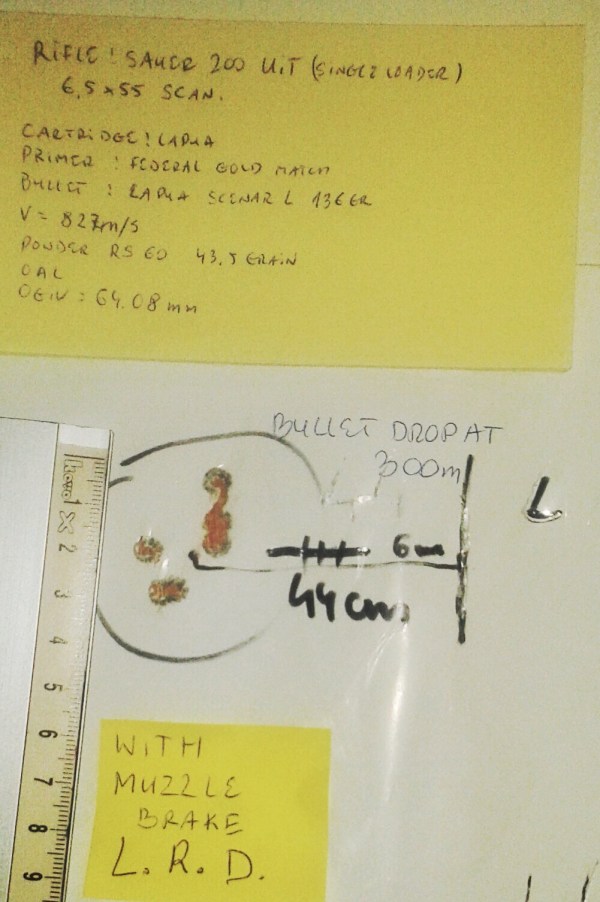 RIFLE: SAUER 200 UIT (SINGLE LOADER)
6,5x55 SCAN.
CARTRIDGE: LAPUA
PRIMER: FEDERAL GOLD MATCH
BULLET: LAPUA SCENAR L 136 GR
V = 827m/s
POWDER RS 60 43.5 GRAIN
OAL
OGIV: 64.08 mm
BULLET DROP AT
300m
44 cm
L
1 2 3 4 5 6 7 8 9
WITH
MUZZLE
BRAKE
L. R. D.